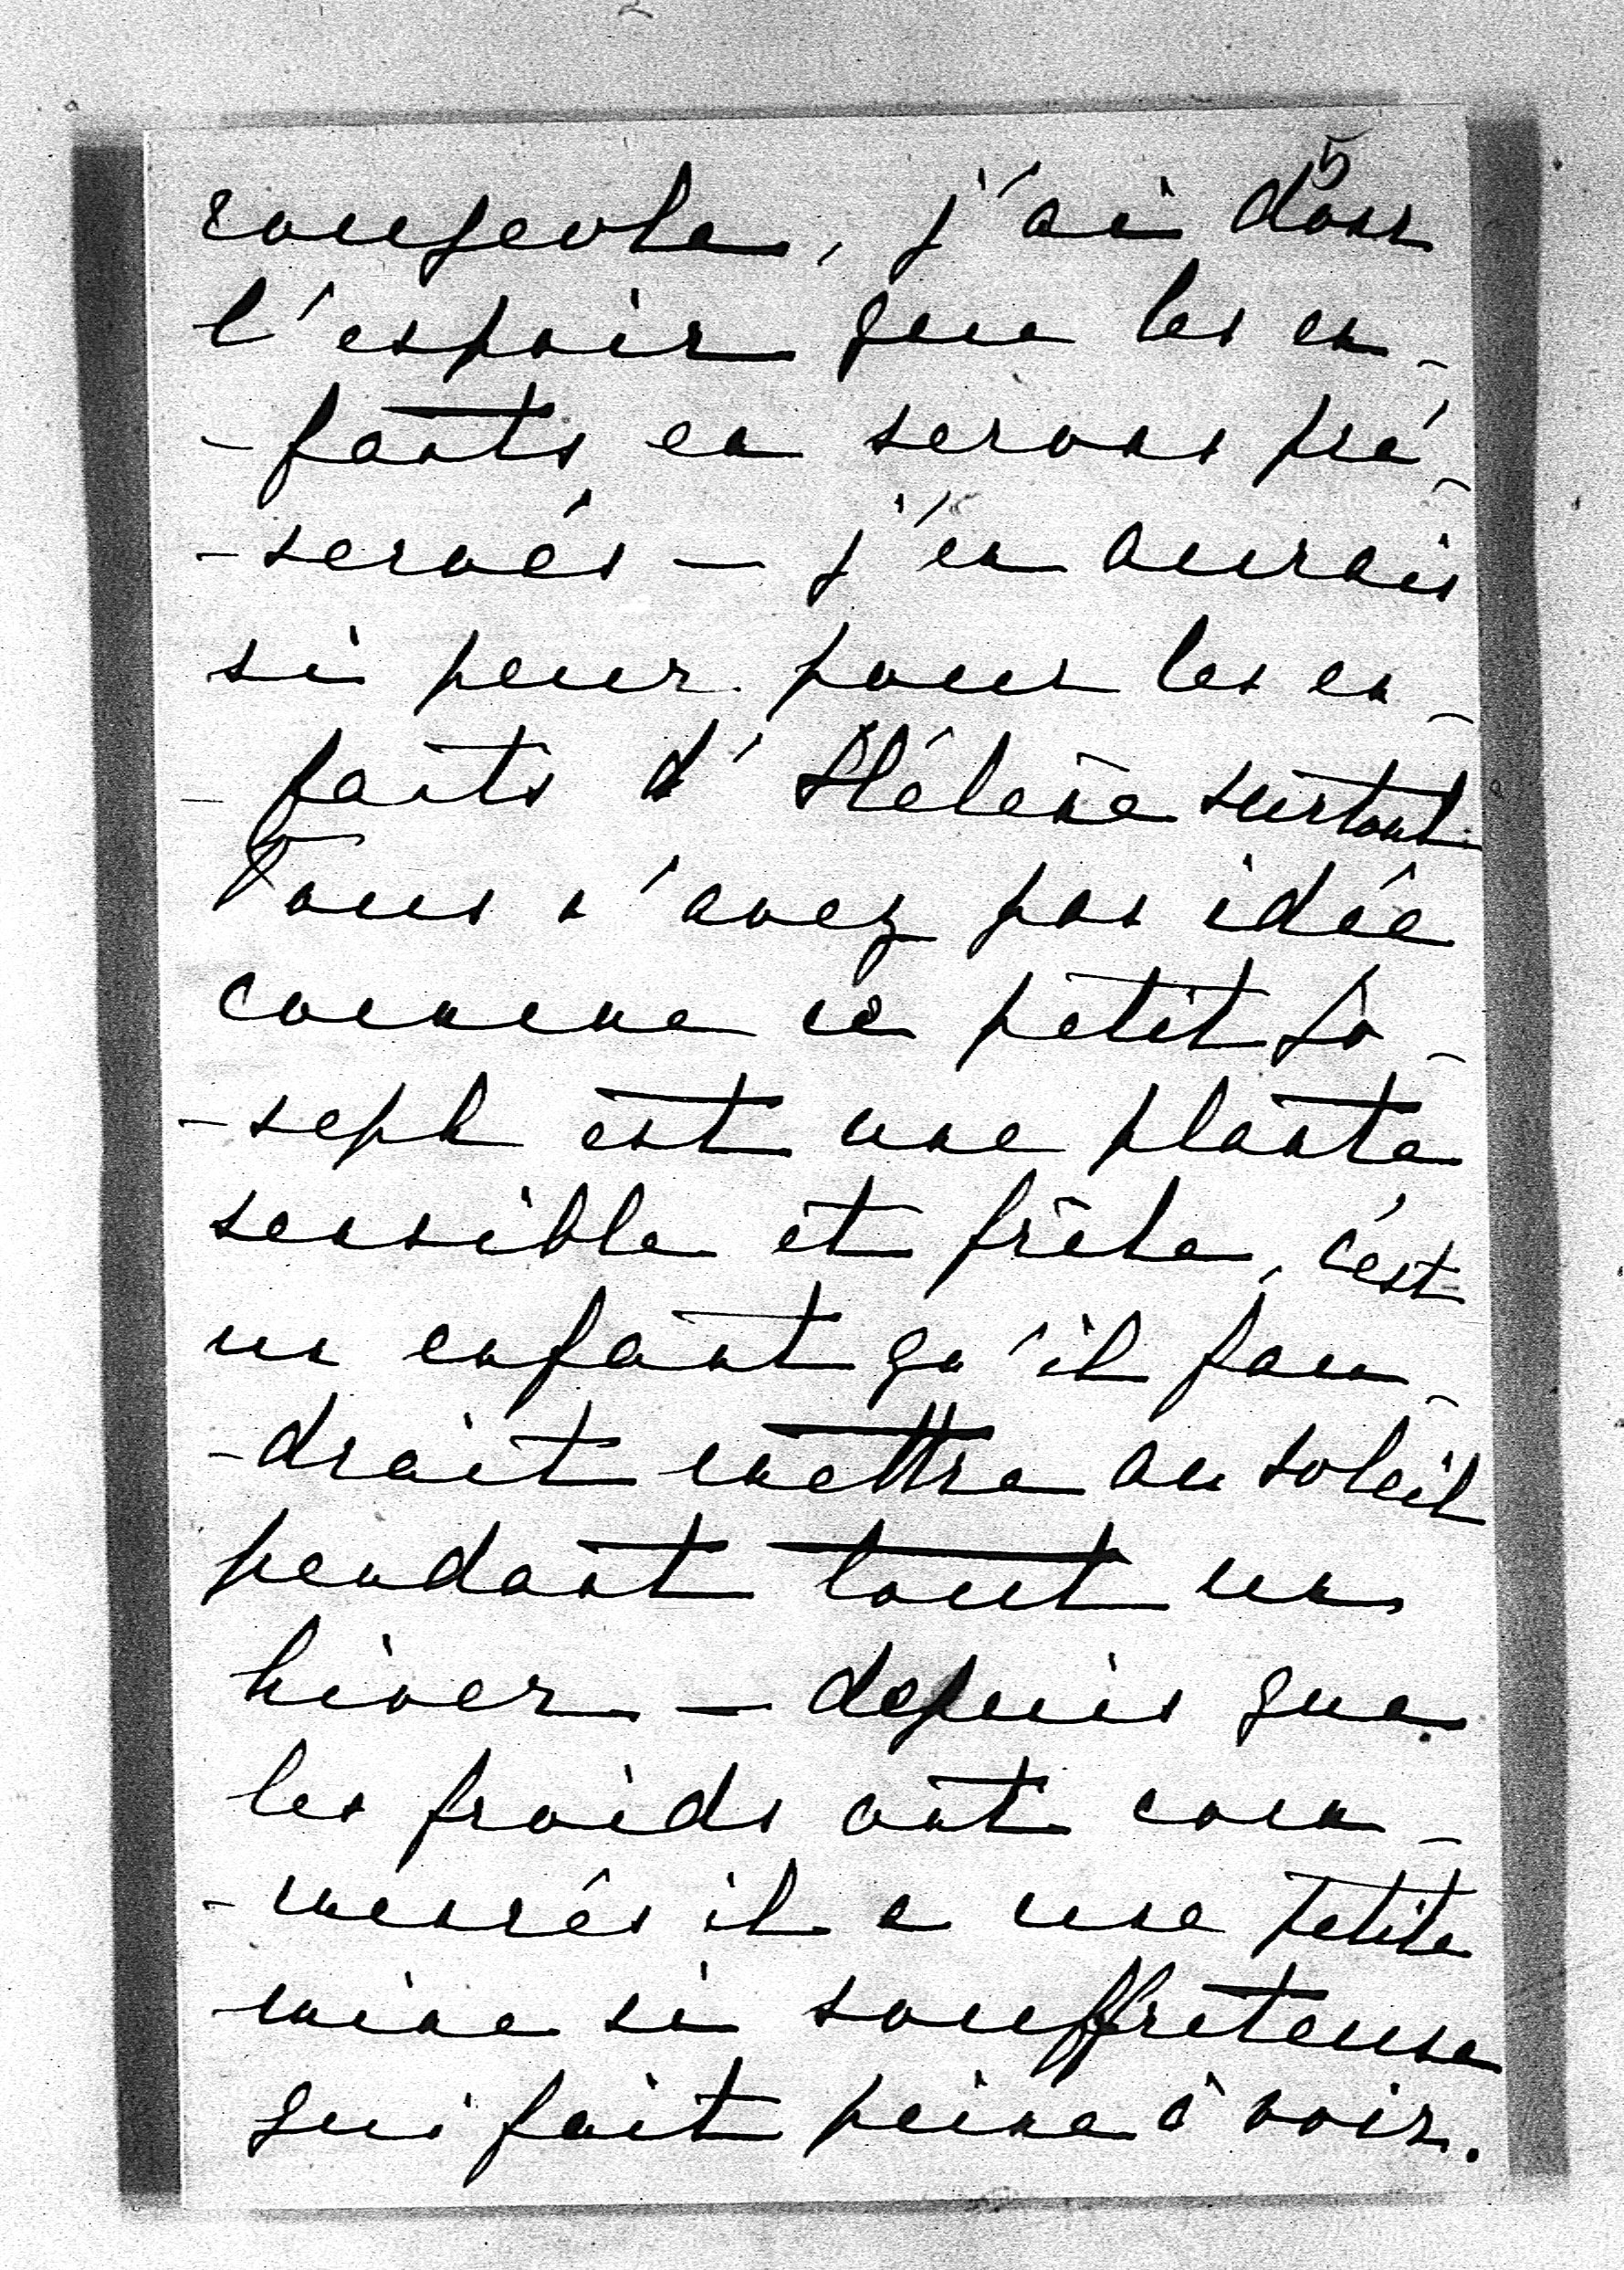 5
rougeole, j'ai donc
l'espoir que les en-
-fants en serons pré-
-servés — j'en aurais
si peur pour les en-
-fants d'Hélène surtout.
Vous n'avez pas idée
comme ce petit Jo-
-seph est une plante
sensible et frêle, c'est
un enfant qu'il fau-
-drait mettre au soleil
pendant tout un
hiver — depuis que
les froids ont com-
-mencés il a une petite
mine si souffreteuse
qui fait peine à voir.